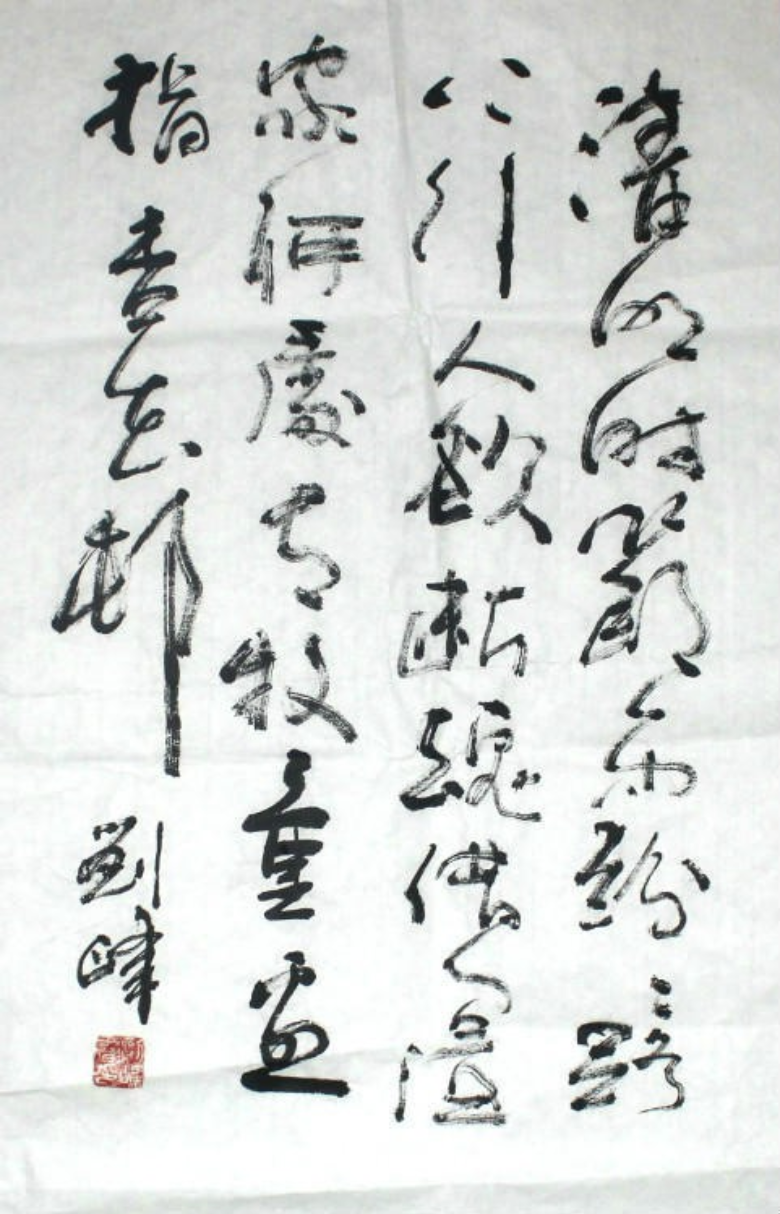 清明時節雨紛紛路
上行人欲断魂借问酒
家何處有牧童遥
指杏花邨
劉峰